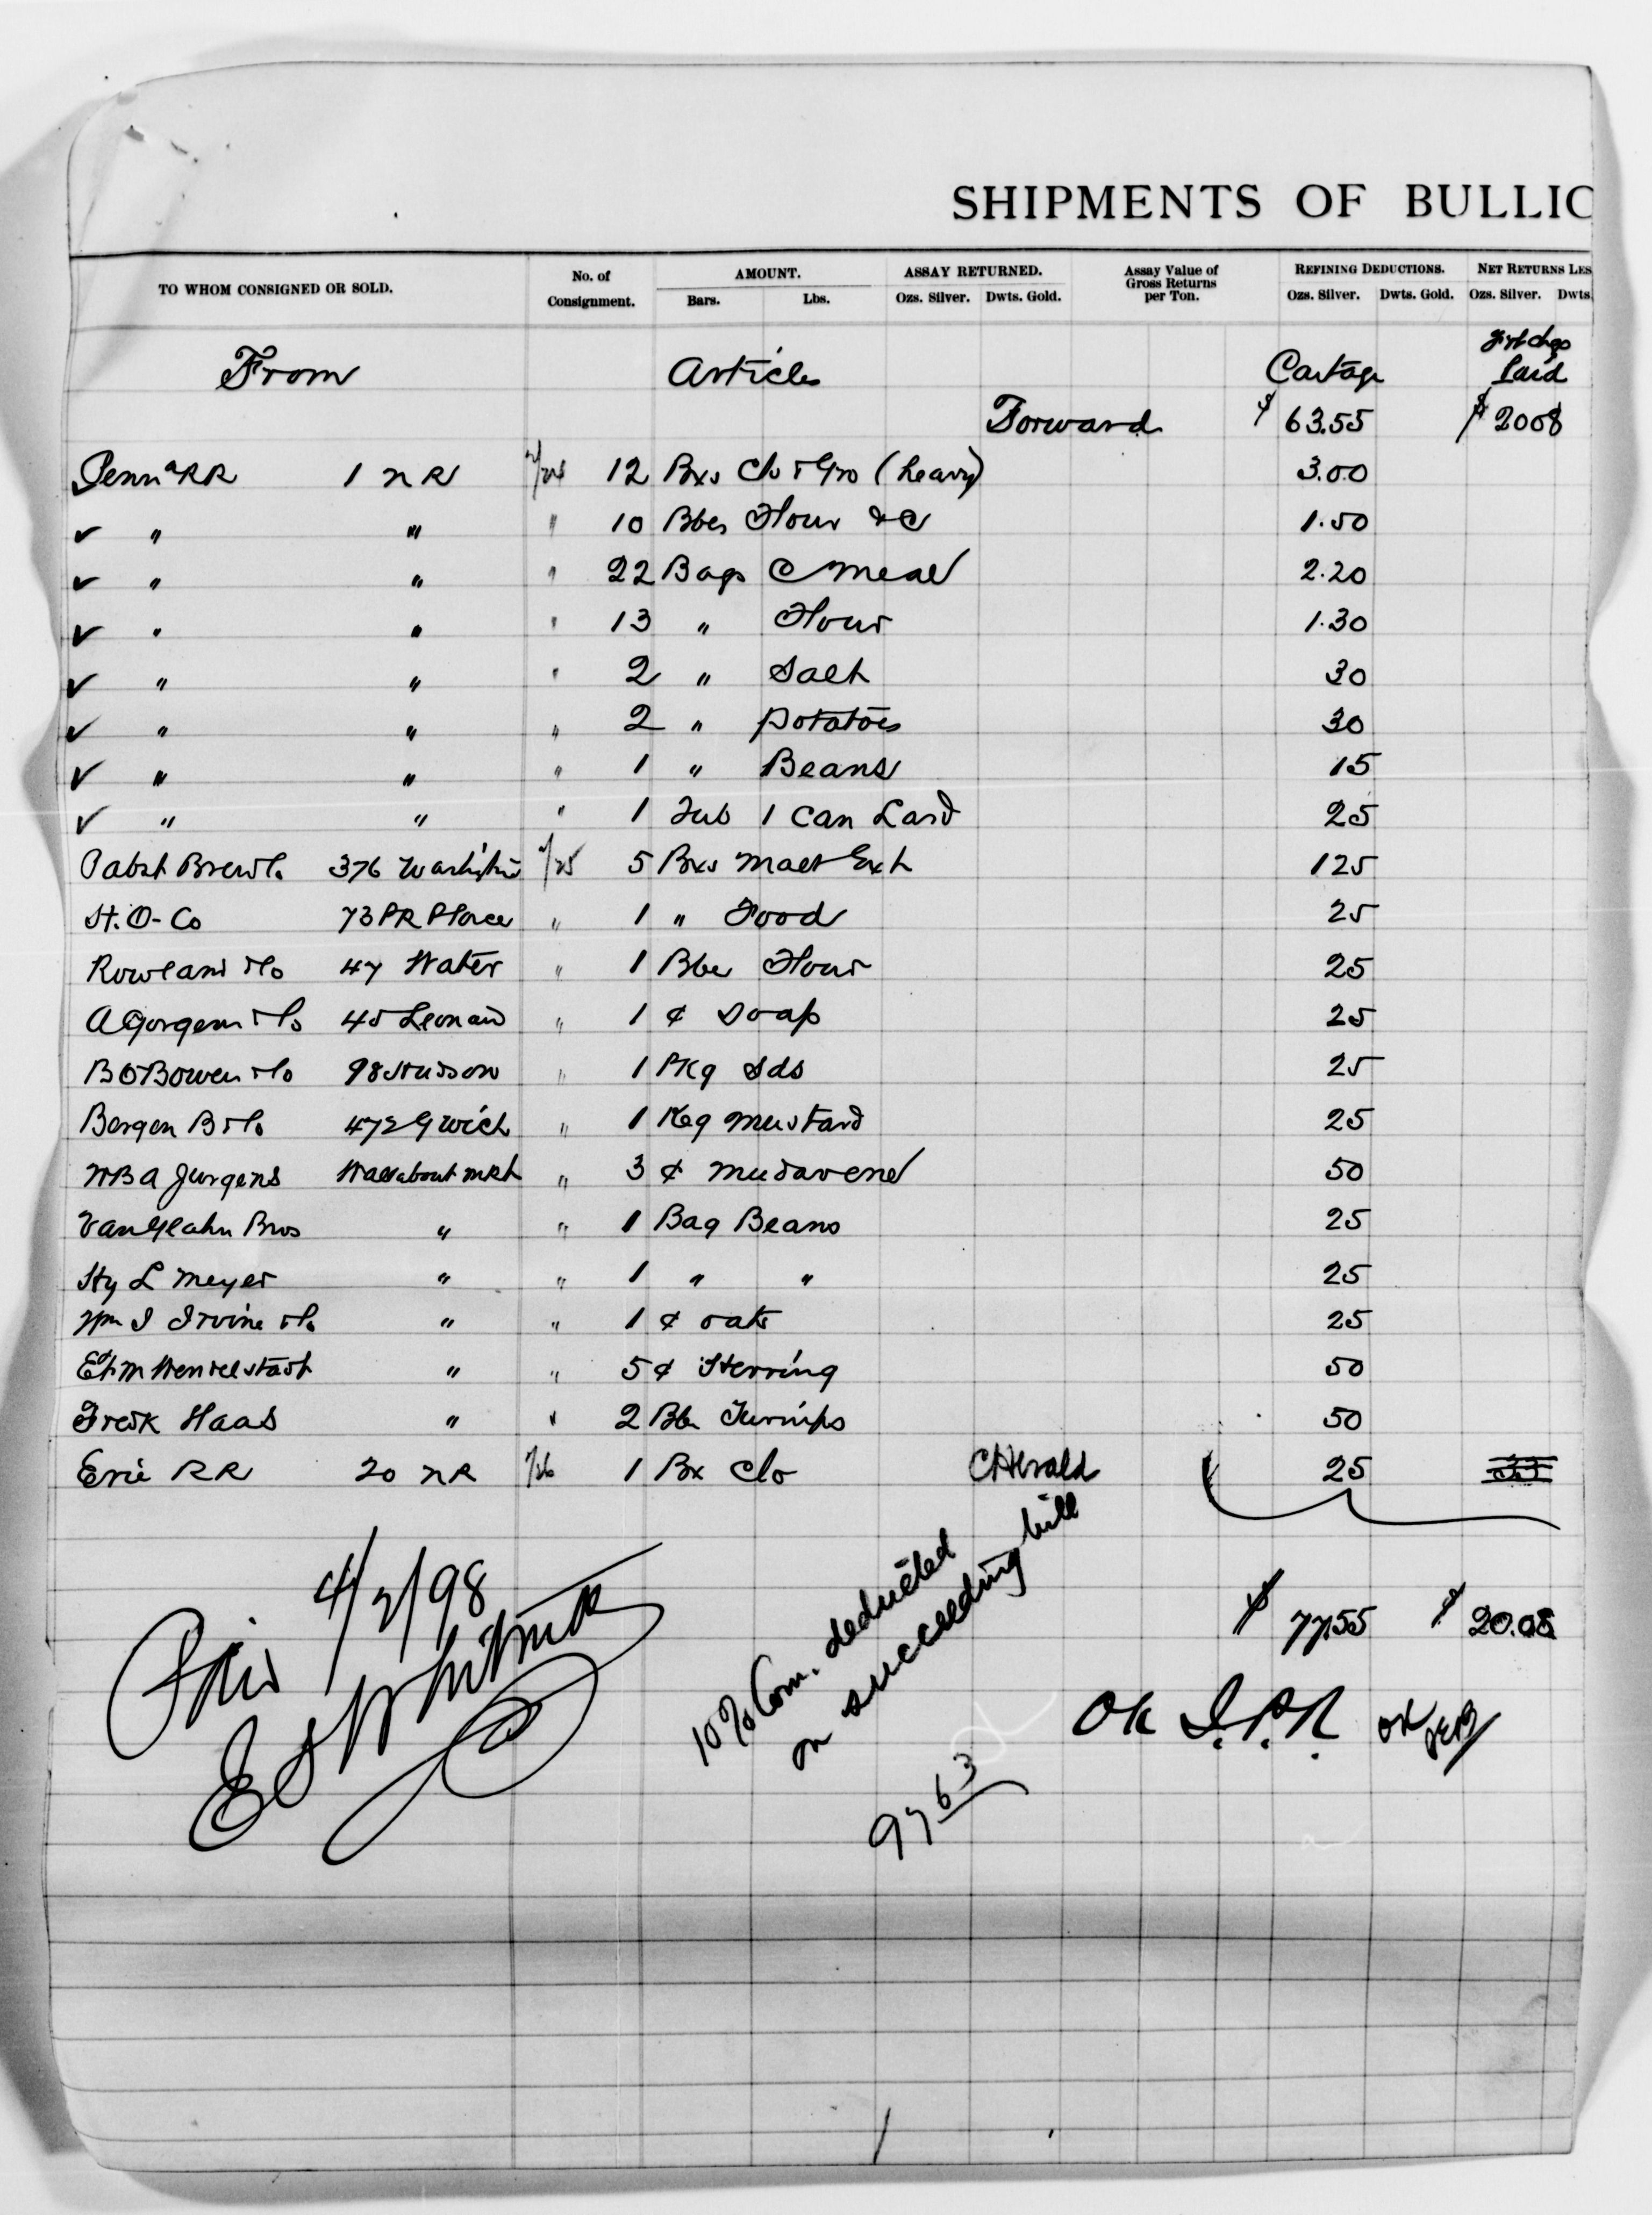 SHIPMENTS OF BULLIO
TO WHOM CONSIGNED OR SOLD. No. of Consignment. AMOUNT. Bars. Lbs. ASSAY RETURNED. Ozs. Silver. Dwts. Gold. Assay Value of Gross Returns per Ton. REFINING DEDUCTIONS. Ozs. Silver. Dwts. Gold. NET RETURNS LES Ozs. Silver. Dwts.
From Articles Cartage Frt chgs Paid
Forward $ 63.55 $ 2008
Penna RR 1 NR 12 Bxs Clo & Gro (heavy) 3.00
✓ " " " 10 Bbls Flour &C 1.50
✓ " " " 22 Bags C Meal 2.20
✓ " " " 13 " Flour 1.30
✓ " " " 2 " Salt 30
✓ " " " 2 " Potatoes 30
✓ " " " 1 " Beans 15
✓ " " " 1 Tub 1 Can Lard 25
Pabst Brew Co 376 Washgtn /25 5 Bxs Malt Ext 125
H. O- Co 73 PR Place " 1 " Food 25
Rowland & Co 47 Water " 1 Bbl Flour 25
A Gorgen & Co 45 Leonard " 1 ¢ Soap 25
B O Bowen & Co 98 Hudson " 1 Pkg Sds 25
Bergen B & Co 472 Gwich " 1 Keg Mustard 25
W B A Jurgens Wallabout Mkt " 3 ¢ 50
Van Glahn Bros " " 1 Bag Beans 25
Hy L Meyer " " 1 " " 25
Wm I Irvine & Co " " 1 ¢ Oats 25
E & M " " 5 ¢ Herring 50
Fredk Haas " " 2 Bbls Turnips 50
Erie RR 20 NR /26 1 Bx Clo C Herald 25
Paid 4/2/98
10% Com. deducted
on succeeding bill
$ 77.55 $ 20.08
OK J.P.R. OK
9763